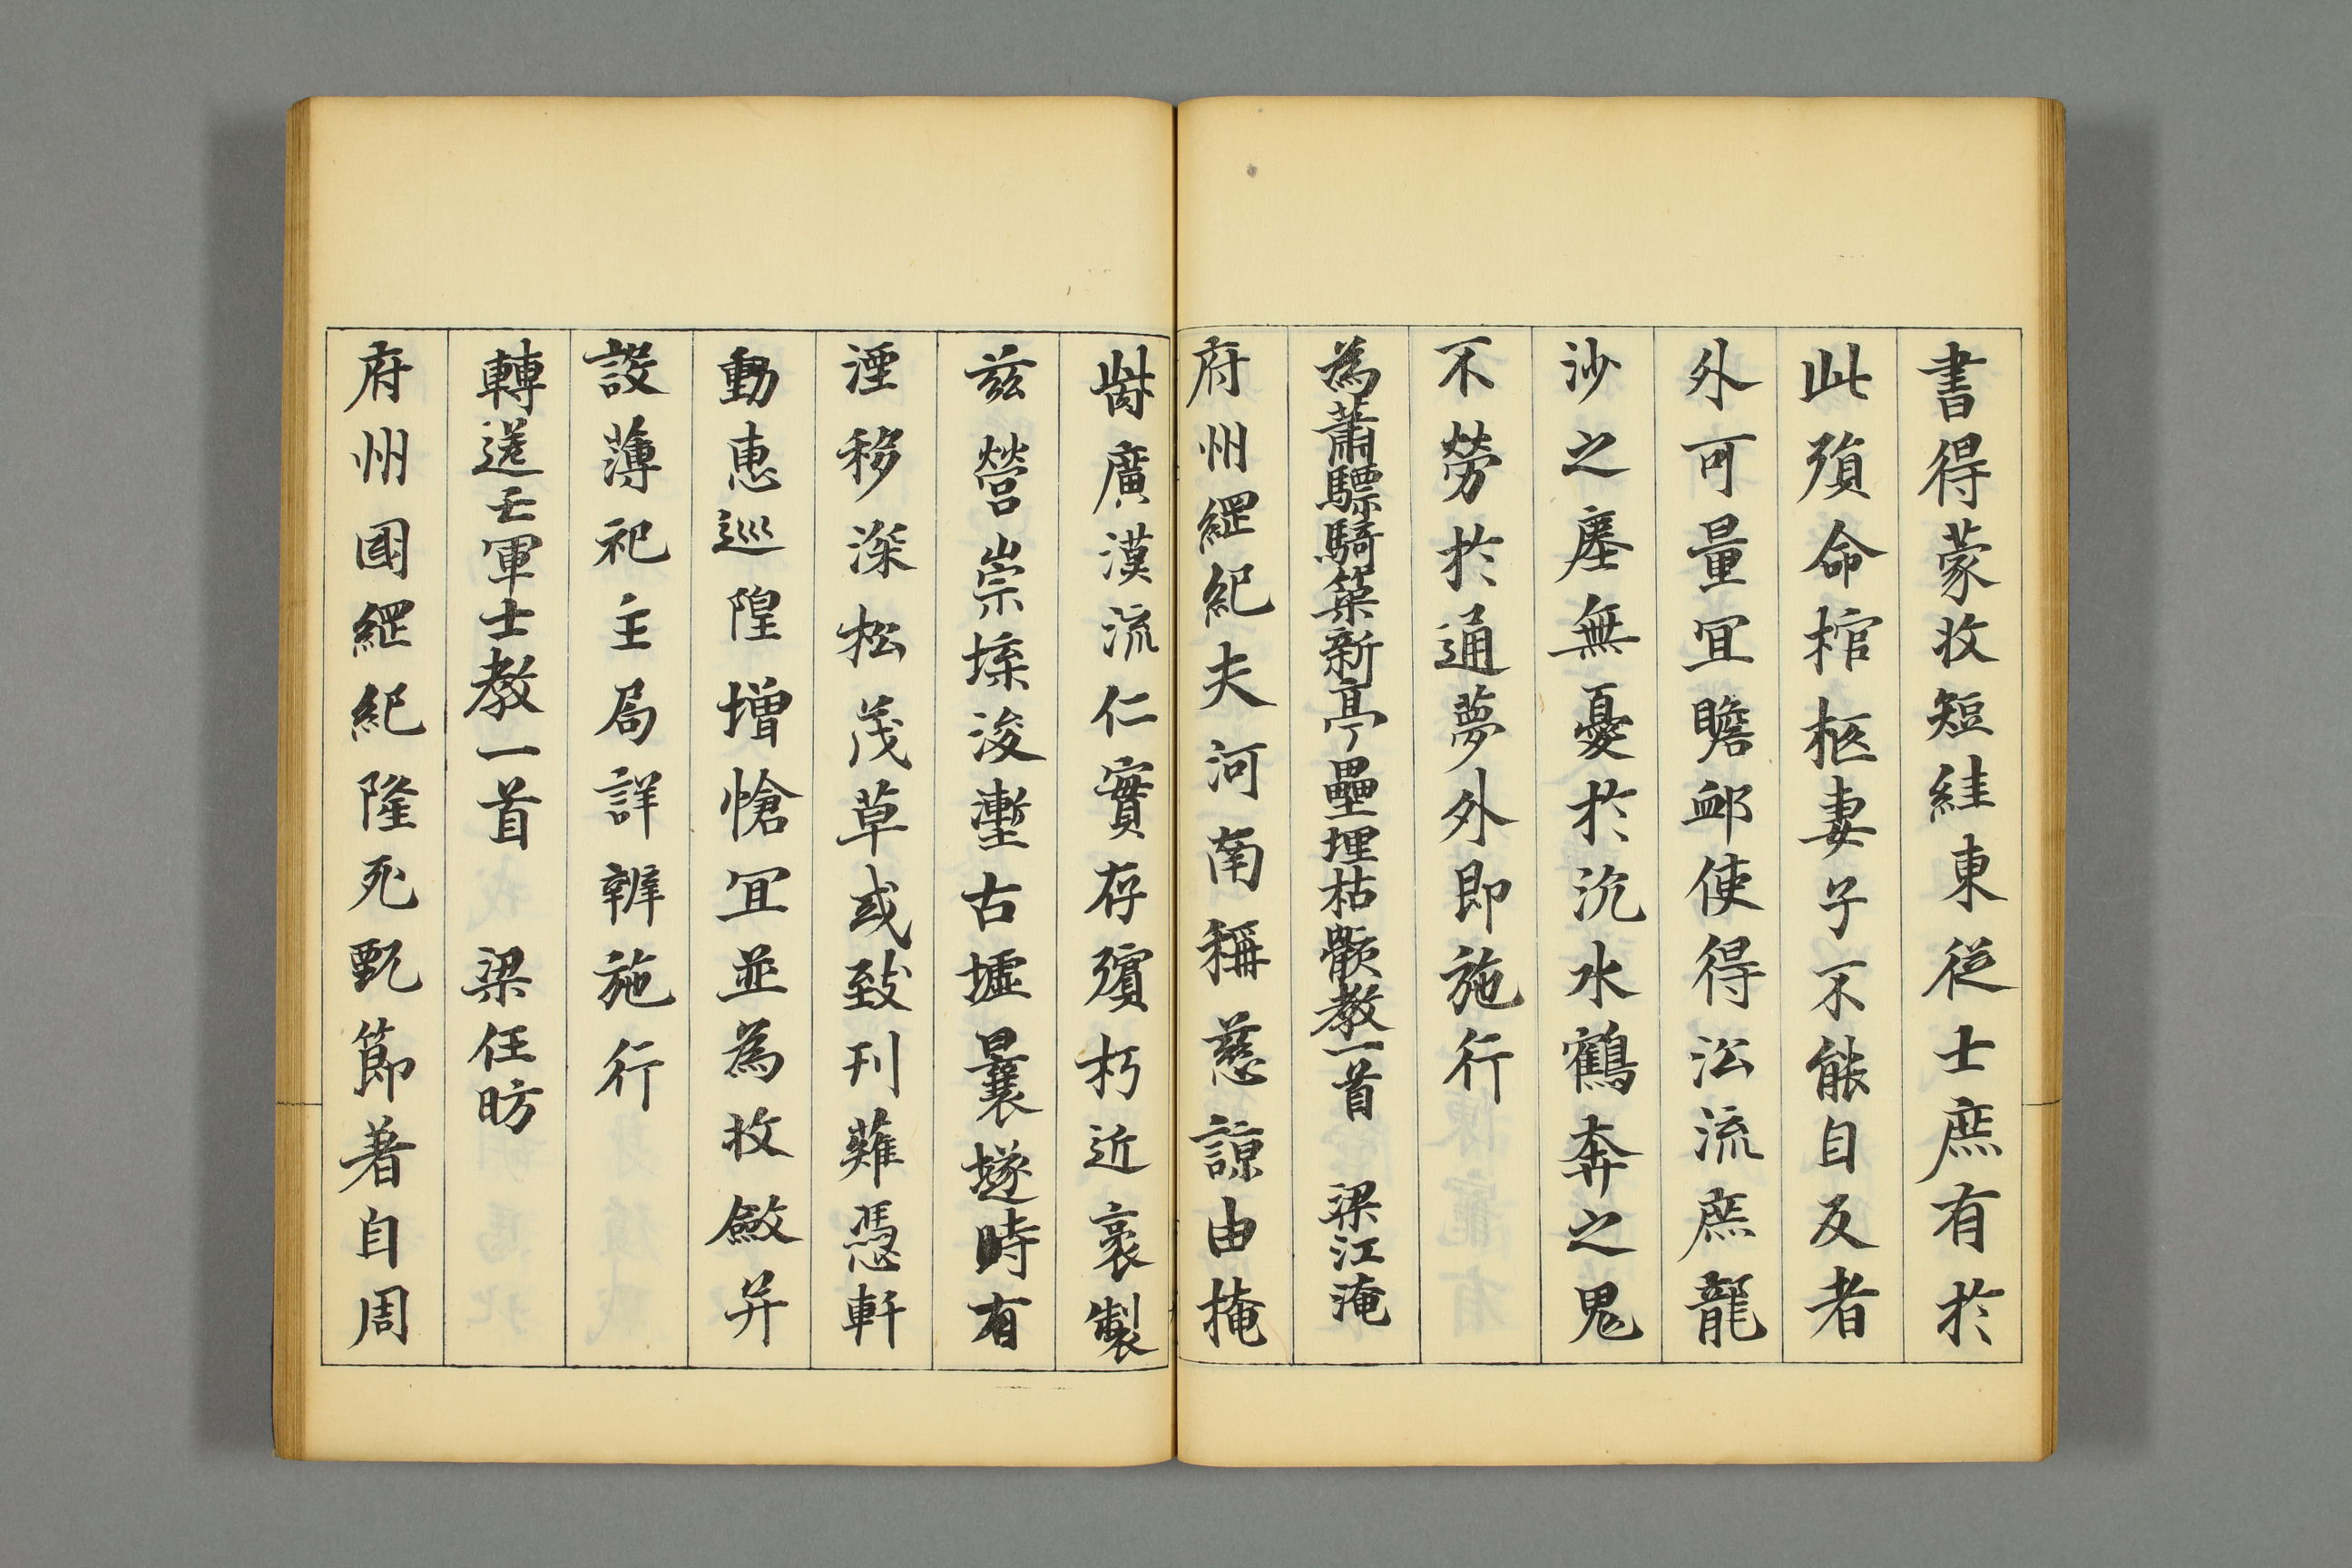 書得蒙收短絓東從士庶有於
此殞命棺柩妻子不能自反者
外可量宜瞻卹使得㳂流庶龍
沙之塵無憂於沉水鶴奔之鬼
不勞於通夢外即施行
為蕭驃騎築新亭壘埋枯骸教一首 梁江淹
府州綱紀夫河南稱慈諒由掩
胔廣漢流仁實存殯朽近裒製
茲營崇塚浚壍古墟曩墜時有
湮移深松茂草或致刊薙憑軒
動惠巡隍增愴宜並為收斂并
設薄祀主局詳辦施行
轉送亡軍士教一首 梁任昉
府州國綱紀隆死甄節著自周